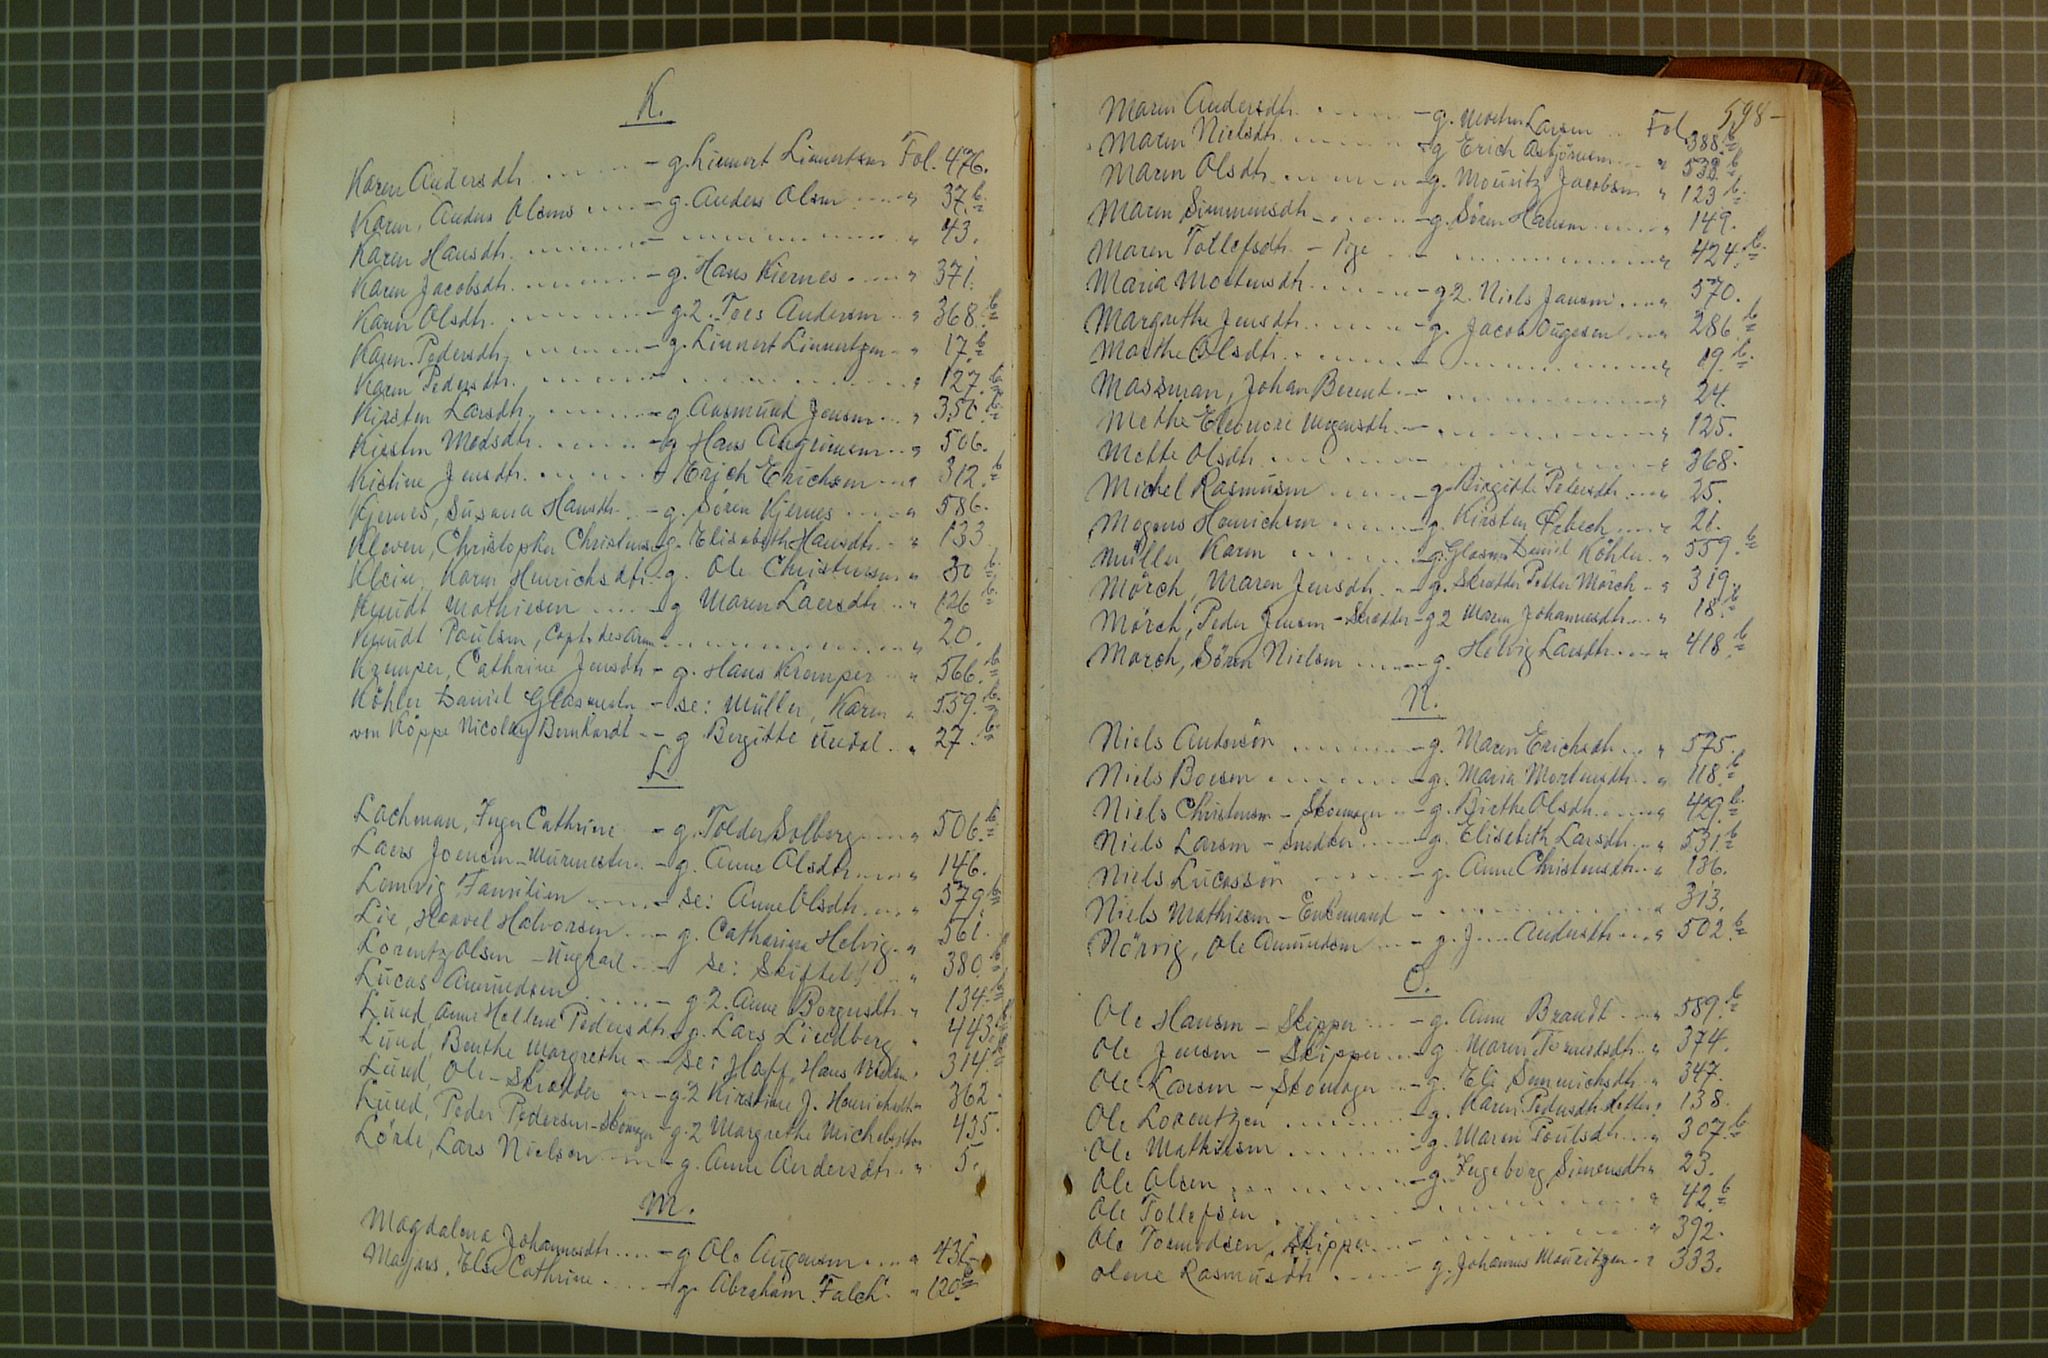 K.
Karen Andersdtr. - g. Linnert Linnertsen Fol. 476.
Karen, Anders Olsens - g. Anders Olsen " 37.b
Karen Hansdtr. " 43.
Karen Jacobsdtr. - g. Hans Kiernes " 371.
Karen Olsdtr. - g.2. Toes Andersen " 368.b
Karen Pedersdtr. - g. Linnert Linnertzen " 17.b
Karen Pedersdtr. " 127.b
Kirsten Larsdtr. - g. Aasmund Jensen " 350.b
Kirsten Madsdtr. - g. Hans Angrimsen " 506.
Kistine Jensdtr. - g. Erich Erichsen " 312.b
Kjernes, Susana Hansdtr. - g. Sören Kjernes " 586.
Kleven, Christopher Christensen g. Elisabeth Hansdtr. " 133.
Klein, Karen Henrichsdtr. g. Ole Christensen " 30.b
Knudt Mathiesen - g Maren Laersdtr. " 126.b
Knudt Poulsen, Capt. des Arm. " 20.
Kremper, Cathrine Jensdtr. - g. Hans Kremper " 566.b
Köhler Daniel Glasmester - se: Müller, Karen " 559.b
von Köppe Nicolay Bernhardt - g Bergitte Undal " 27.b
L
Lachman, Inger Cathrine - g. Tolder Solberg " 506.b
Laers Joensen - Murmester - g. Anne Olsdtr. " 146.
Lemvig Familien - se: Anne Olsdtr. " 579.b
Lie, Haavel Halvorsen - g. Catharina Helvig " 561.
Lorentz Olsen - Ungkarl - se: Skiftet! " 380.b
Lucas Amundsen - g.2. Anne Borgersdtr. " 134.b
Lund, Anne Hellene Pedersdtr. g. Lars Liedberg " 443.b
Lund, Benthe Margrethe - se: Hoff, Hans Nielsen " 314.b
Lund, Ole - Skrædder - g.2 Kirstine J. Henrichsdtr. 362.
Lund, Peder Pedersen - Skomager - g.2 Margrethe Michelsdtr. 435.
Lörke, Lars Nielsen - g. Anne Andersdtr. " 5.
M.
Magdalena Johannesdtr. - g Ole Augensen " 436.
Majors, Else Cathrine - g. Abraham Falch " 120.b
598-
Maren Andersdtr. - g. Morten Larsen Fol. 388.b
Maren Nielsdtr. - g Erich Asbjörnsen " 533.b
Maren Olsdtr. - g. Mouritz Jacobsen " 123.b
Maren Simensdtr. - g. Sören Hansen " 149.
Maren Tollefsdtr. - Pige " 424.b
Maria Mortensdtr. - g2. Niels Jansen " 570.
Margrethe Jensdtr. - g. Jacob Ougesen " 286.b
Marthe Olsdtr. " 19.b
Massman, Johan Berent " 24.
Methe Eleonore Mogensdtr. " 125.
Mette Olsdtr. " 368.
Michel Rasmusen - g. Birgitte Pedersdtr. " 25.
Mogens Henrichsen - g. Kirsten Ørbech " 21.
Müller Karen - g. Glasm. Daniel Köhler " 559.b
Mörch, Maren Jensdtr. - g. Skrædder Petter Mörch " 319.
Mörch, Peder Jensen - Skrædder - g2 Maren Johannesdtr. " 18.b
Mörch, Sören Nielsen - g. Helvig Larsdtr. " 418.b
N.
Niels Andersön - g. Maren Erichsdtr. " 575.
Niels Boesen - g. Maria Mortensdtr. " 118.b
Niels Christensen - Skomager - g. Birthe Olsdtr. " 429.b
Niels Larsen - Snedker - g. Elisebeth Larsdtr. " 531.b
Niels Lucassön - g. Anne Christensdtr. " 136.
Niels Mathiesen - Enkemand " 313.
Nörvig, Ole Amundsen - g. J.... Andersdtr. " 502.b
O.
Ole Hansen - Skipper - g. Anne Brandt " 589.b
Ole Jensen - Skipper - g. Maren Tormodsdtr. " 374.
Ole Larsen - Skomager - g. Eli Semmichsdtr. " 347.
Ole Lorentzen - g. Karen Pedersdtr. " 138.
Ole Mathiesen - g. Maren Poulsdtr. " 307.b
Ole Olsen - g. Ingeborg Simensdtr. " 23.
Ole Tollefsen " 42.b
Ole Tormodsen, Skipper " 392.
Olene Rasmusdtr. - g. Johannes Mouritzen " 333.